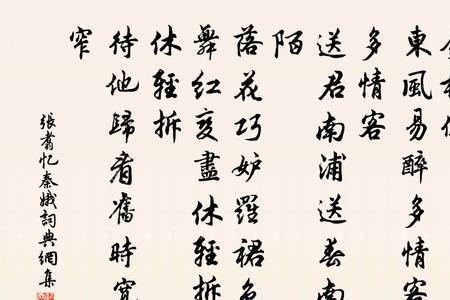 東風易醉多情客
多情客
送君南浦送春南
陌
落花巧妒羅裙色
舞紅變盡休輕拆
休輕拆
待他歸看舊時寬
窄
張翥忆秦娥詞典網集